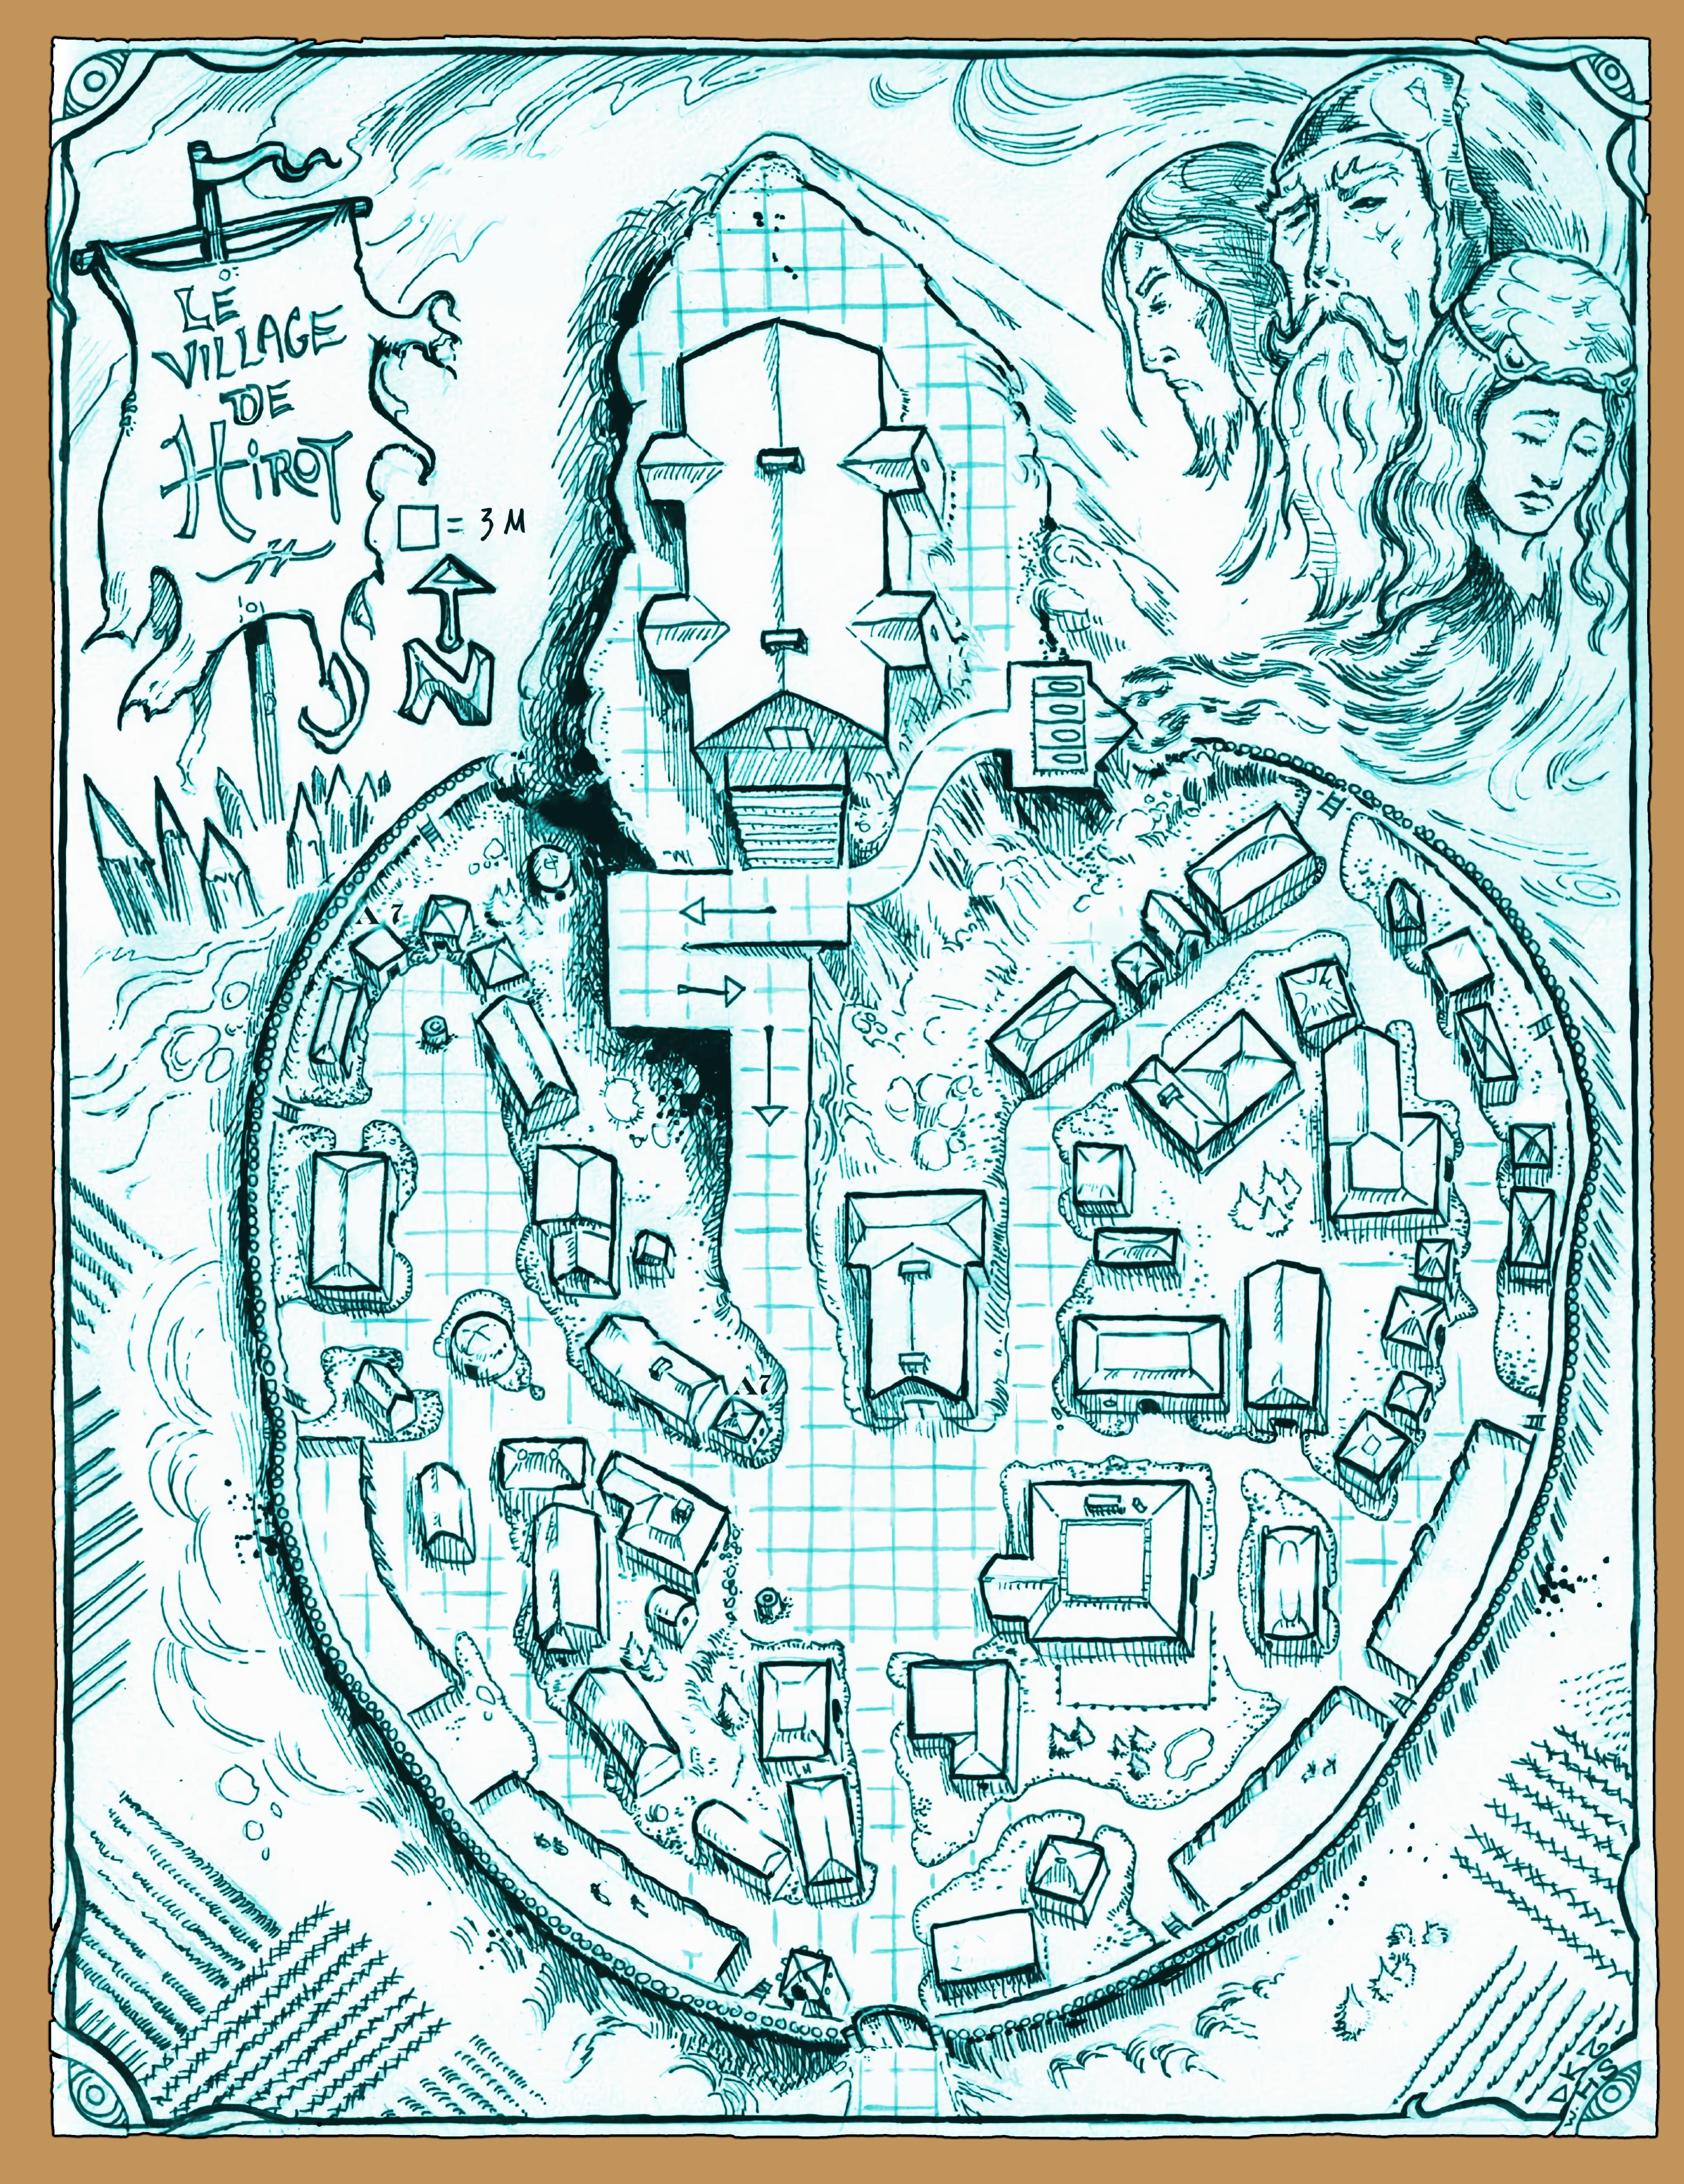 LE
VILLAGE
DE
HIROT
= 3 M
N
A 7
A7